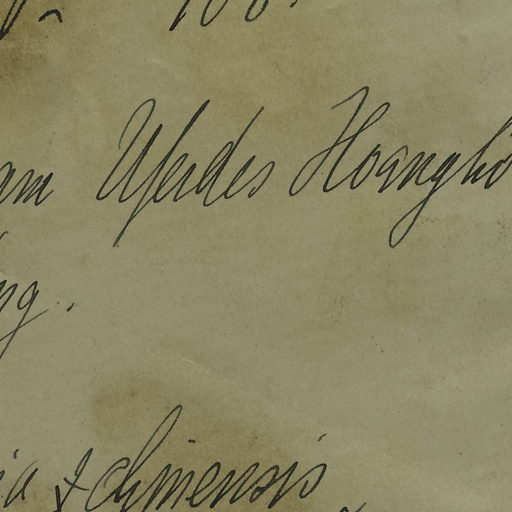 100.
am Ufer des Hoangho
ng.
ia chinensis